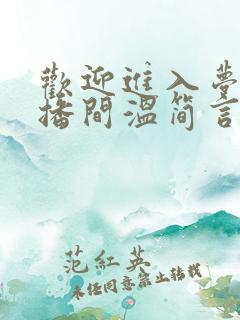 歡迎進入夢
播間溫简言
范紅英
未经同意禁止转载